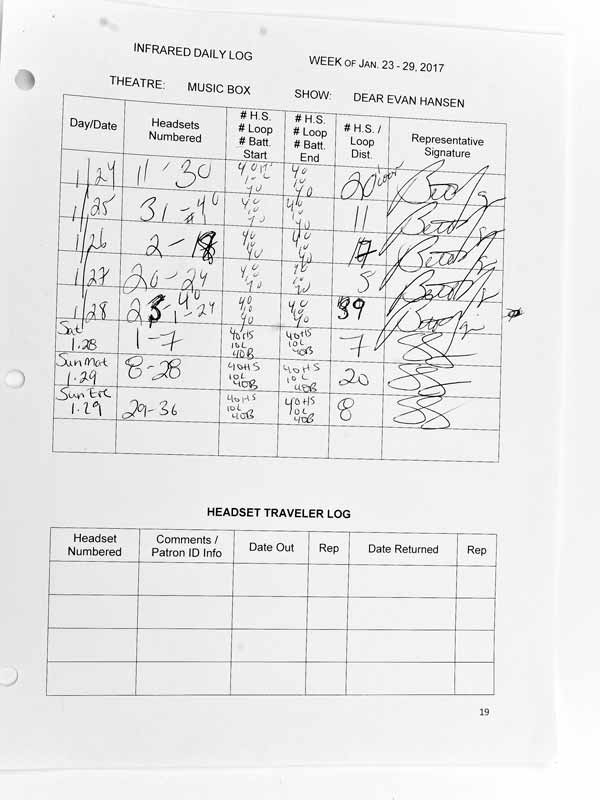 INFRARED DAILY LOG WEEK OF JAN. 23 - 29, 2017
THEATRE: MUSIC BOX SHOW: DEAR EVAN HANSEN
Day/Date
Headsets
Numbered
# H.S.
# Loop
# Batt.
Start
# H.S.
# Loop
# Batt.
End
# H.S. /
Loop
Dist.
Representative
Signature
1/24 11-30
40
40
40
40
20
1/25 31-40
40
10
40
40
10
40
11
1/26 2-18
40
10
40
40
10
40
17
1/27 20-24
40
10
40
40
10
40
5
1/28
40
10
40
40
10
40
39
Sat
1.28
1-7
40HS
10L
40B
40HS
10L
40B
7
Sun Mat
1.29
8-28
40HS
10L
40B
40HS
10L
40B
20
Sun Eve
1.29
29-36
40HS
10L
40B
40HS
10L
40B
8
HEADSET TRAVELER LOG
Headset
Numbered
Comments /
Patron ID Info
Date Out
Rep
Date Returned
Rep
19